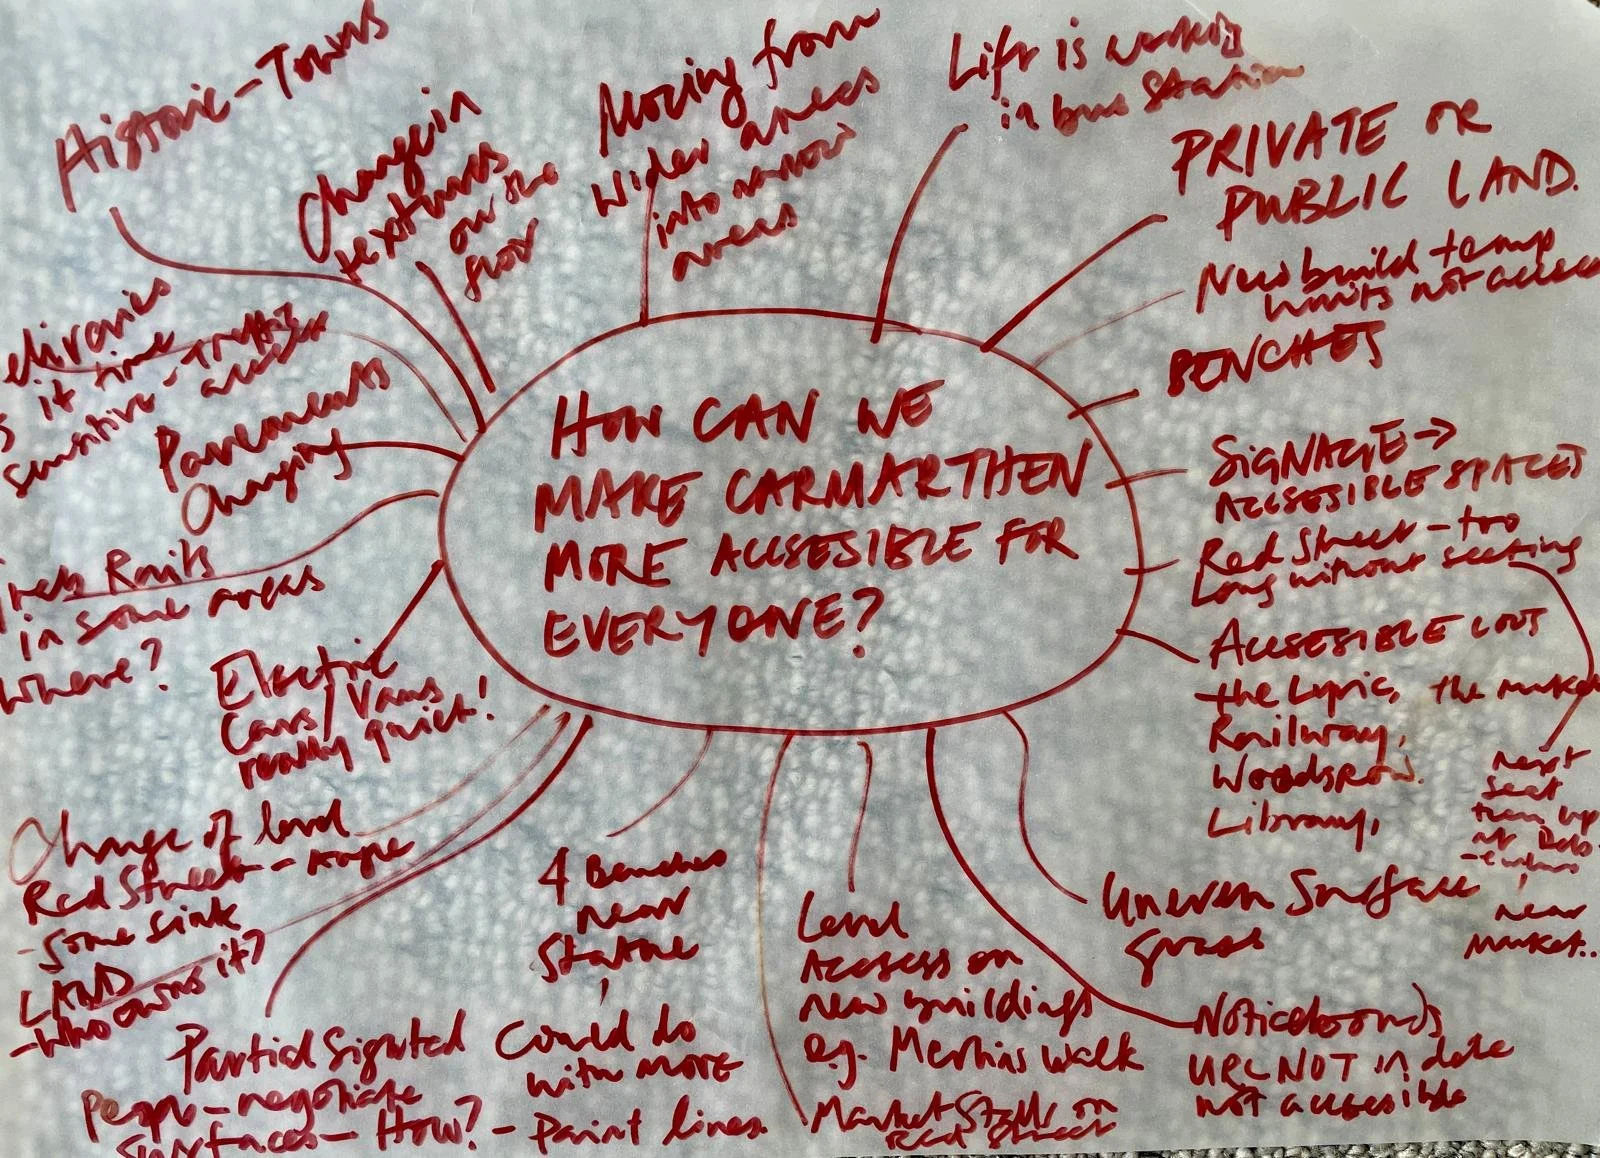 HOW CAN WE
MAKE CARMARTHEN
MORE ACCSESIBLE FOR
EVERYONE?
Historic-Towns
Change in
textures
on the
floor
Moving from
wider areas
into narrow
areas
Lift is working
in bus station
PRIVATE OR
PUBLIC LAND.
New build temp
units not access
BENCHES
SIGNAGE →
ACCSESIBLE SPACES
Red Street - too
Long without seating
next
seat
then up
at Deb-
-enhams
near
market..
ACCSESIBLE LOOS
the Lyric, the market
Railway,
Woodsrow.
Library,
Uneven Surface
grass
Noticeboards
URL NOT in date
not accessible
Level
Access on
new buildings
eg. Merlins Walk
Market Stalls on
Red Street
4 Benches
near
Statue
Could do
with more
- Paint lines.
Partial Sighted
People - negotiate
surfaces - How?
Change of level
Red Street -
- Some sink
LAND
- Who owns it?
Electric
Cars/Vans
really quiet!
Rails
in some areas
where?
Pavements
Changing
eliveries
s it time
sensitive - traffic
access